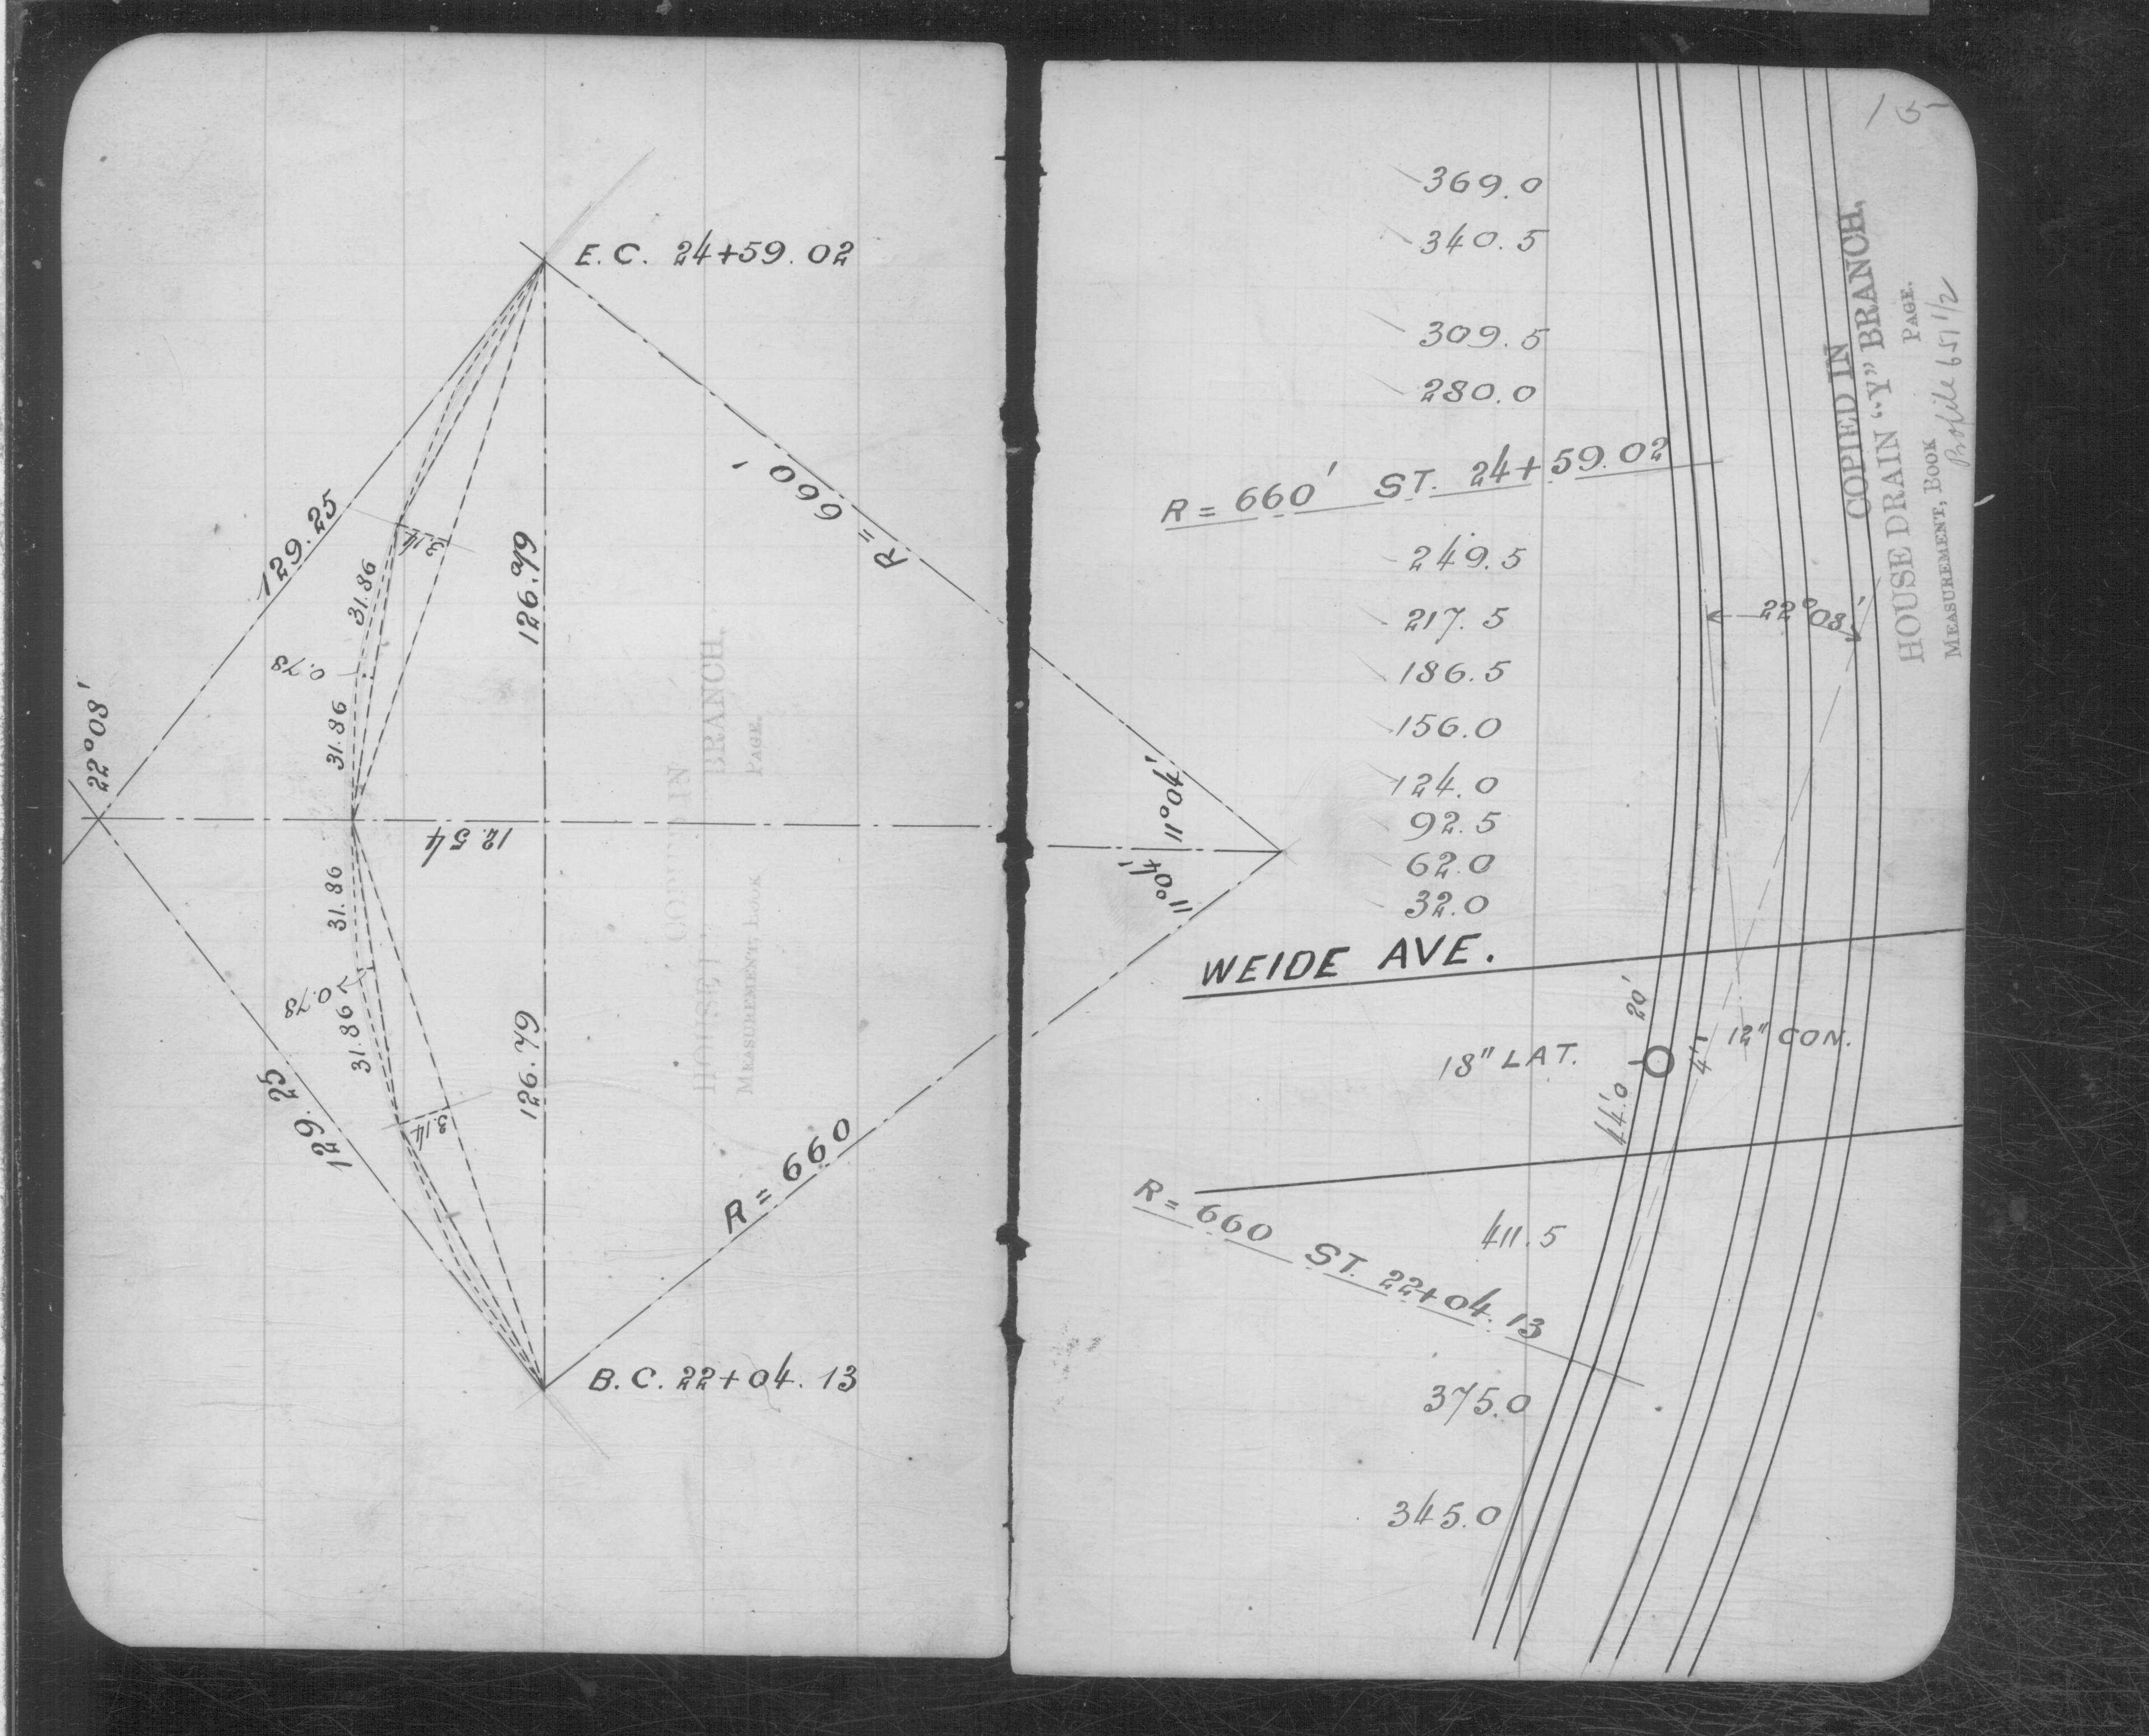 E. C. 24+59.02
129.25
22°08'
31.86
3.14
126.79
R = 660'
0.78
31.86
12.54
31.86
0.78
31.86
3.14
126.79
129.25
R = 660
B. C. 22+04.13
11°04'
11°04'
15
369.0
340.5
309.5
280.0
R = 660' ST. 24+59.02
249.5
217.5
186.5
156.0
124.0
92.5
62.0
32.0
22°08'
WEIDE AVE.
20'
18" LAT.
4'
12" CON.
44.0
R = 660 ST. 22+04.13
411.5
375.0
345.0
COPIED IN
HOUSE DRAIN "Y" BRANCH,
MEASUREMENT, BOOK PAGE.
651 1/2